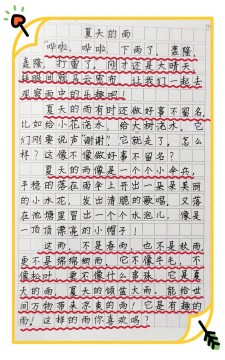 夏天的雨
“哗啦,哗啦,下雨了,轰隆,
轰隆,打雷了,刚才还是大晴天,
眨眼间就乌云密布,让我们一起去
观察雨中的乐趣吧!
夏天的雨有时还做好事不留名,
比如给小花浇水,给大树浇水,它
们刚要说声“谢谢”它就走了,怎么
样?这像不像做好事不留名?
夏天的雨像是一个个小伞兵,
平稳的落在雨伞上开出一朵朵美丽
的小水花,发出清脆的歌唱,又落
在池塘里冒出一个个水泡儿,像是
一顶顶漂亮的小帽子!
这雨,不是春雨,也不是秋雨
更不是绵绵细雨,它不像牛毛,不
像松叶,更不像什么串珠,它是夏
天的雨,夏天的倾盆大雨,能给世
间万物带来凉爽的雨!它是有趣的
雨!这样的雨你喜欢吗?